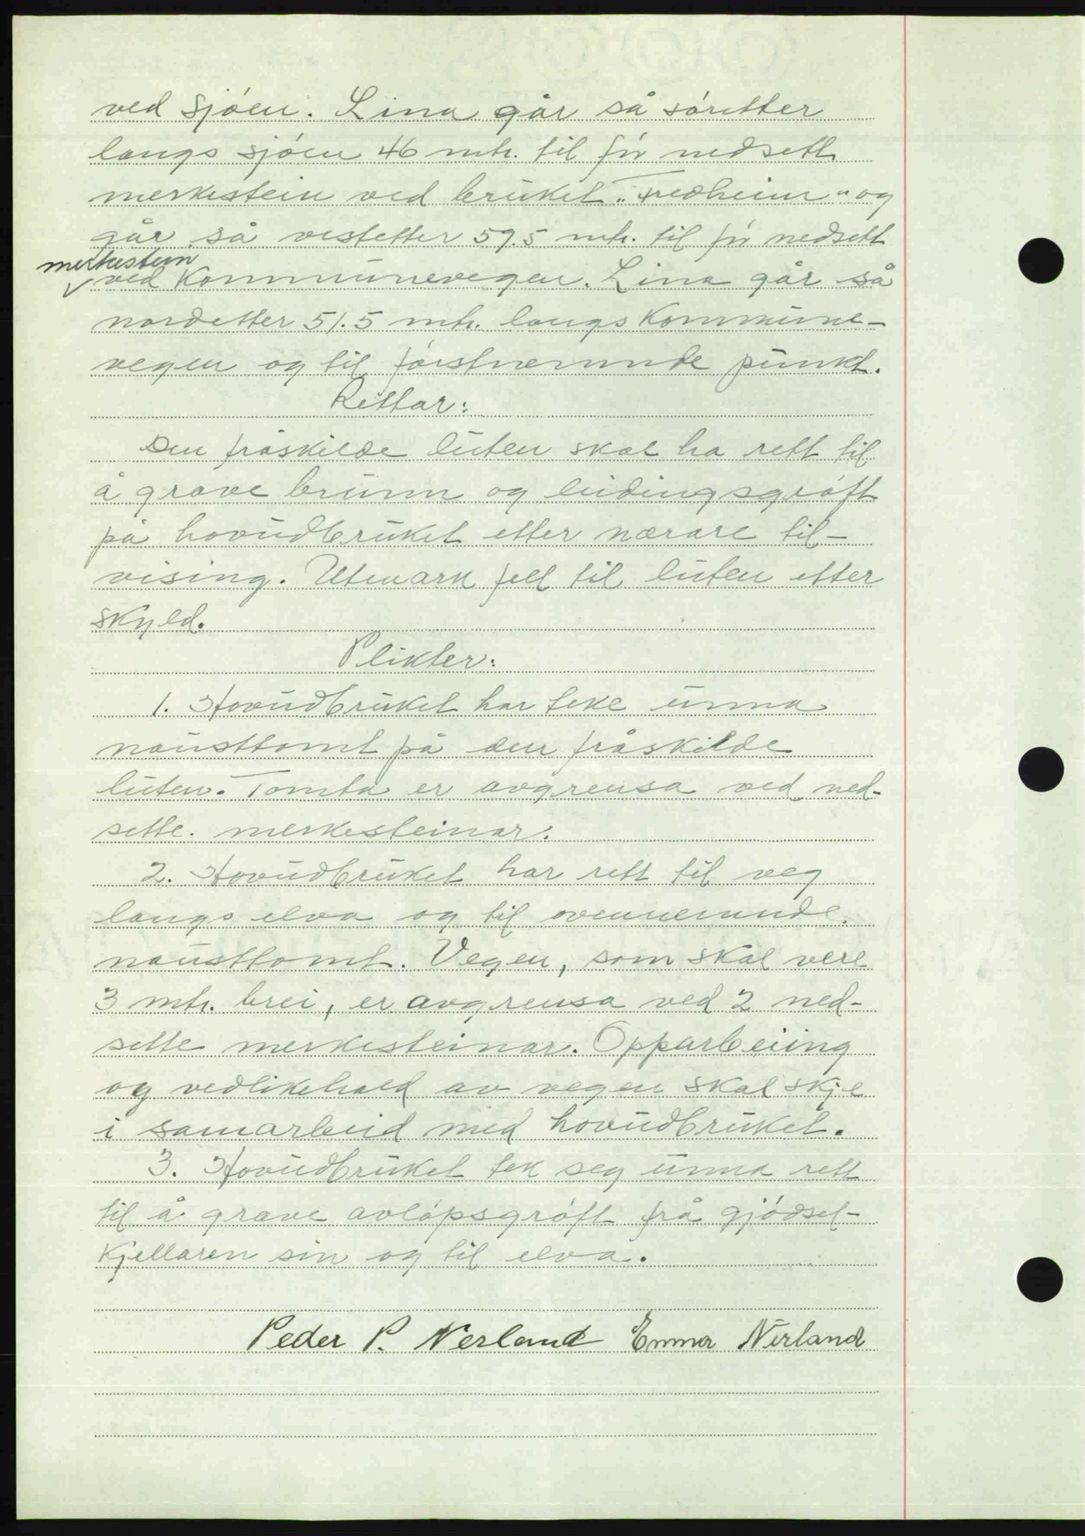 ved sjøen. Lina går så søretter
langs sjøen 46 mtr. til før nedsett
merkestein ved bruket "Fredheim" og
går så vestetter 59.5 mtr. til før nedsett
merkestein
ved Kommunevegen. Lina går så
nordetter 51.5 mtr. langs Kommune-
vegen og til førstnemnde punkt.
Rettar:
Den fråskilde luten skal ha rett til
å grave brunn og leidingsgrøft
på hovudbruket etter nærare til-
vising. Utmark fell til luten etter
skyld.
Plikter:
1. Hovudbruket har teke unna
nausttomt på den fråskilde
luten. Tomta er avgrensa ved ned-
sette merkesteinar.
2. Hovudbruket har rett til veg
langs elva og til ovennemnde
nausttomt. Vegen, som skal vere
3 mtr. brei, er avgrensa ved 2 ned-
sette merkesteinar. Opparbeiing
og vedlikehald av vegen skal skje
i samarbeid med hovudbruket.
3. Hovudbruket tek seg unna rett
til å grave avløpsgrøft frå gjødsel-
kjellaren sin og til elva.
Peder P. Nerland Emma Nerland